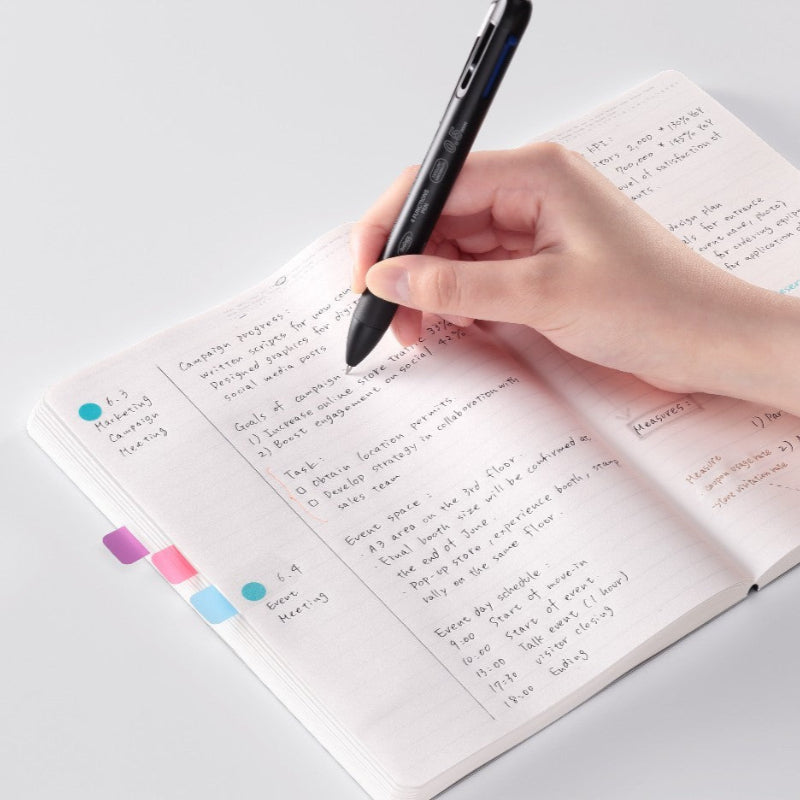 6.3
Marketing
Campaign
Meeting
Campaign progress:
Written scripts for new
Designed graphics for
social media posts
Goals of campaign
1) Increase online store traffic 33%
2) Boost engagement on social 42%
Task:
□ Obtain location permits.
□ Develop strategy in collaboration with
sales team
6.4
Event
Meeting
Event space:
A3 area on the 3rd floor.
· Final booth size will be confirmed at
the end of June.
· Pop-up store, experience booth, stamp
rally on the same floor.
Event day schedule:
9:00 Start of move-in
10:00 Start of event
13:00 Talk event (1 hour)
17:30 visitor closing
18:00 Ending
KPI:
2,000 * 130% YoY
700,000 * 145% YoY
level of satisfaction of
design plan
for entrance
event name, photo)
for ordering
for application
Measures:
1)
Measure
2)
· coupon usage rate
→ store visitation rate
0.5mm
4 FUNCTIONS
PEN